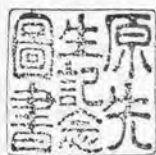 原先
生記念
圖書